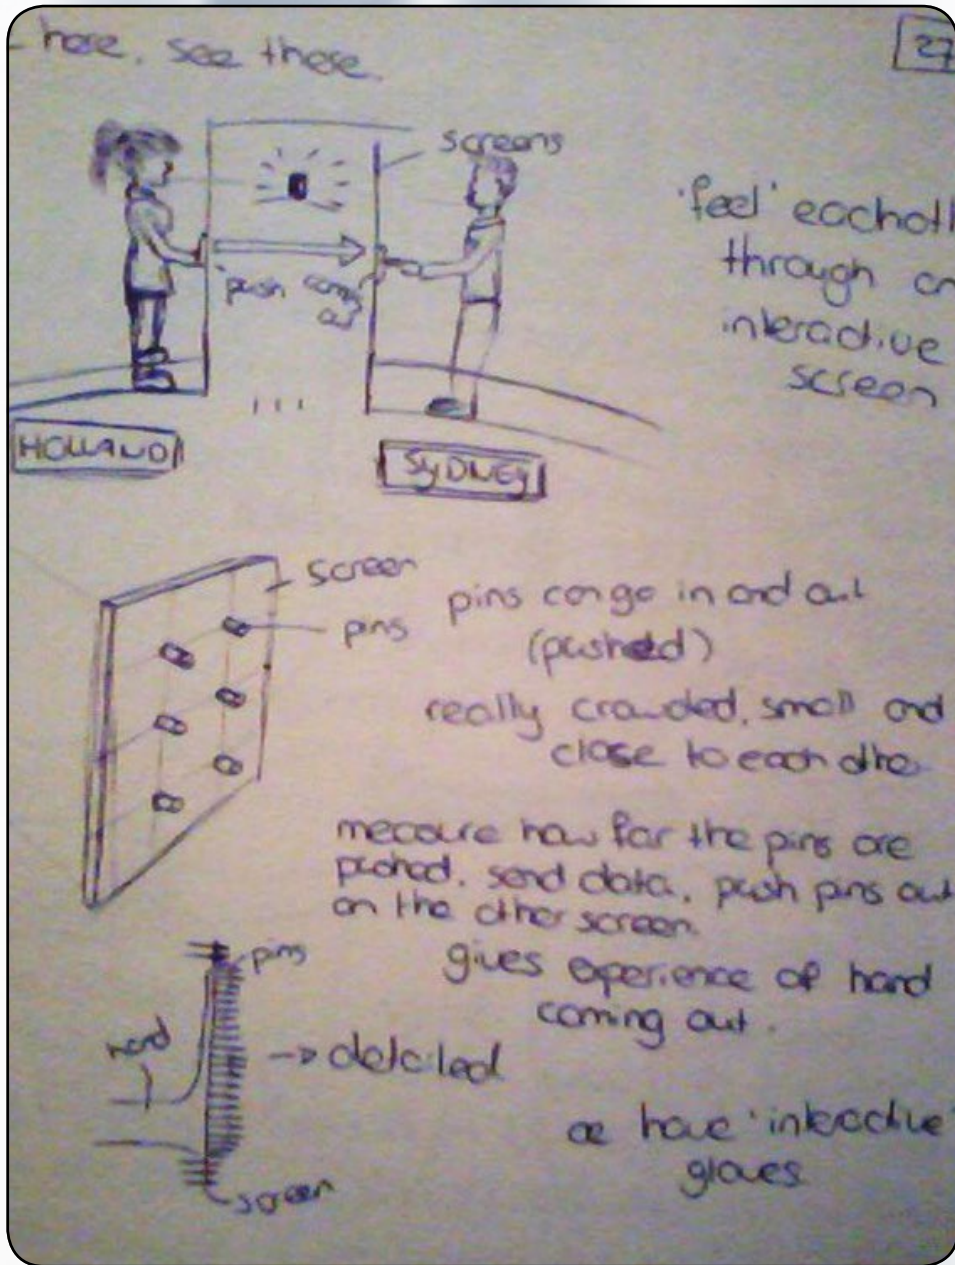 - here, see there.
27
screens
'feel' eachoth
through an
interactive
screen
push
coming
out
HOLLAND
SYDNEY
screen
pins
pins can go in and out
(pushed)
really crowded, small and
close to each other
measure how far the pins are
pushed, send data, push pins out
on the other screen.
gives experience of hand
coming out.
pins
hand
-> detailed
screen
or have 'interactive'
gloves